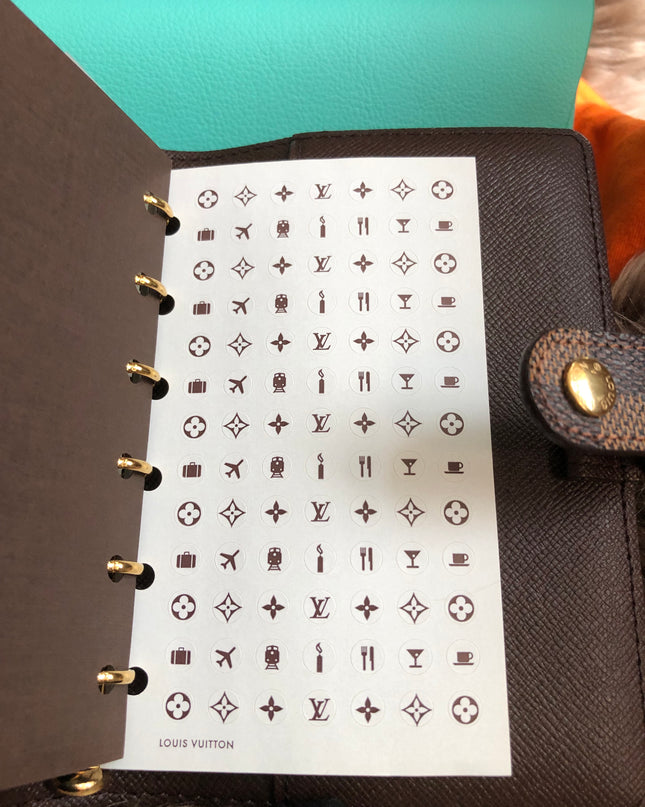 LV
LV
LV
LV
LV
LV
LV
LOUIS VUITTON